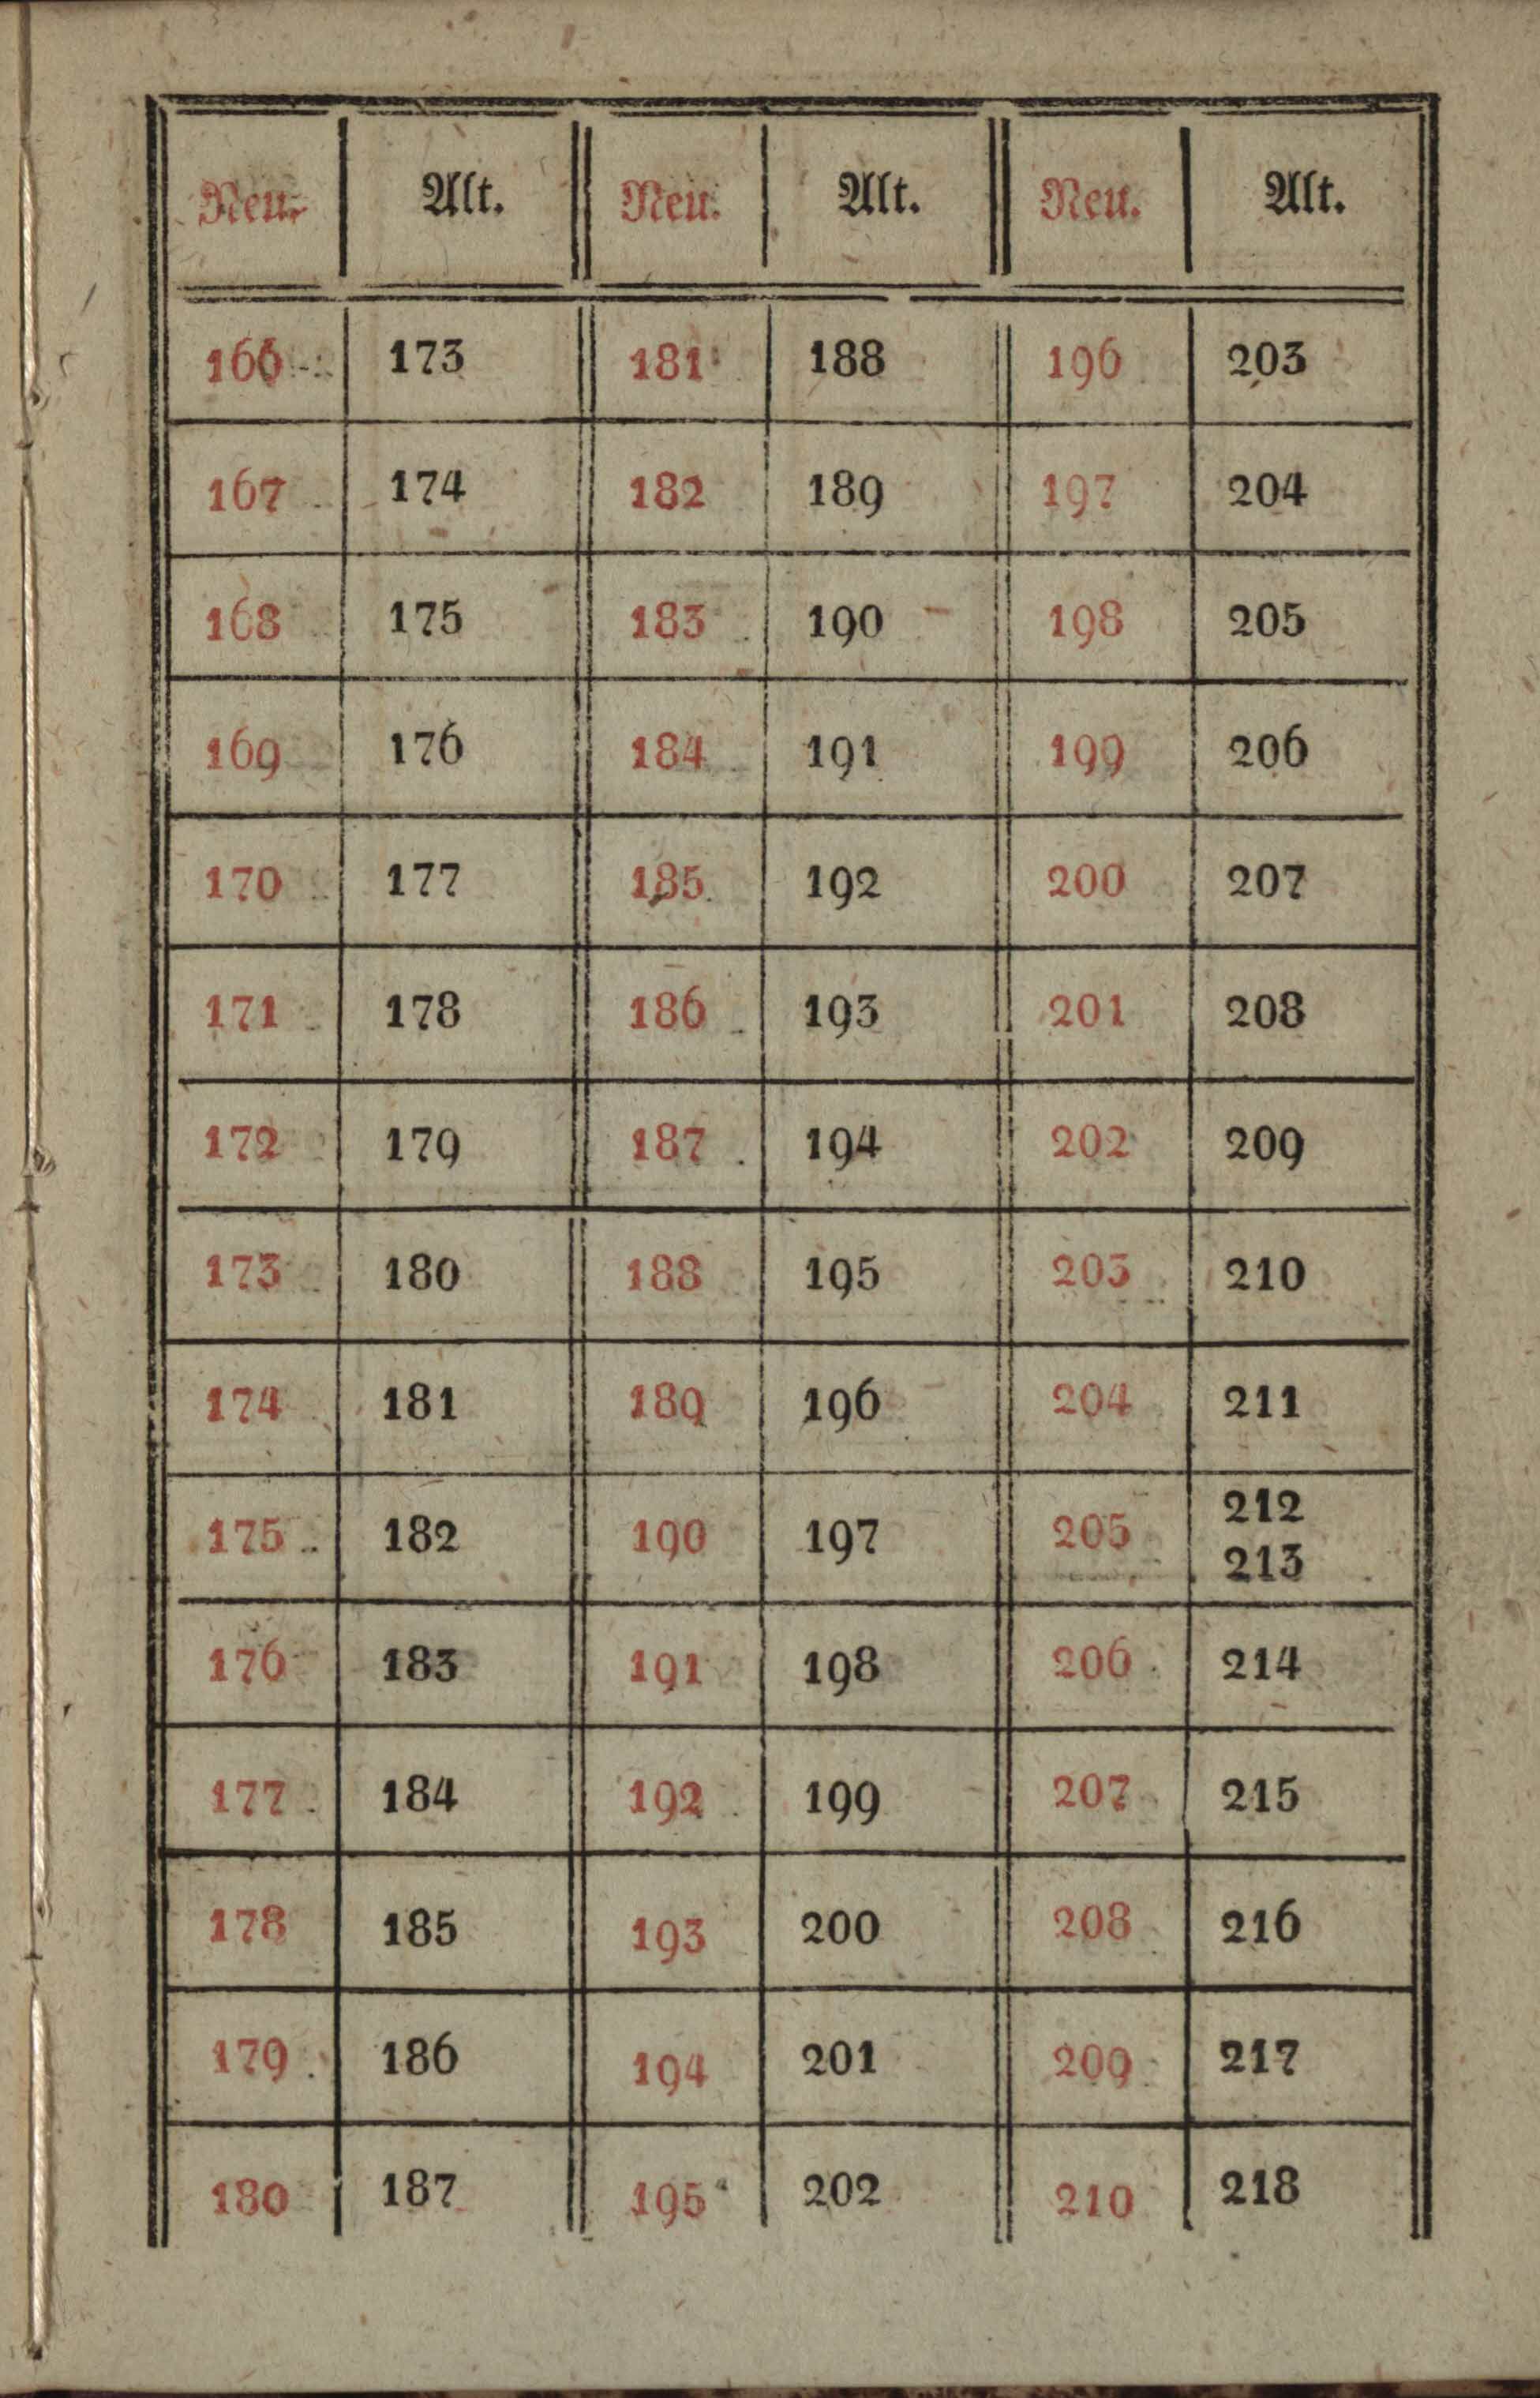 Neu. Alt. Neu. Alt. Neu. Alt.
166 173 181 188 196 203
167 174 182 189 197 204
168 175 183 190 198 205
169 176 184 191 199 206
170 177 185 192 200 207
171 178 186 193 201 208
172 179 187 194 202 209
173 180 188 195 203 210
174 181 189 196 204 211
175 182 190 197 205 212
213
176 183 191 198 206 214
177 184 192 199 207 215
178 185 193 200 208 216
179 186 194 201 209 217
180 187 195 202 210 218